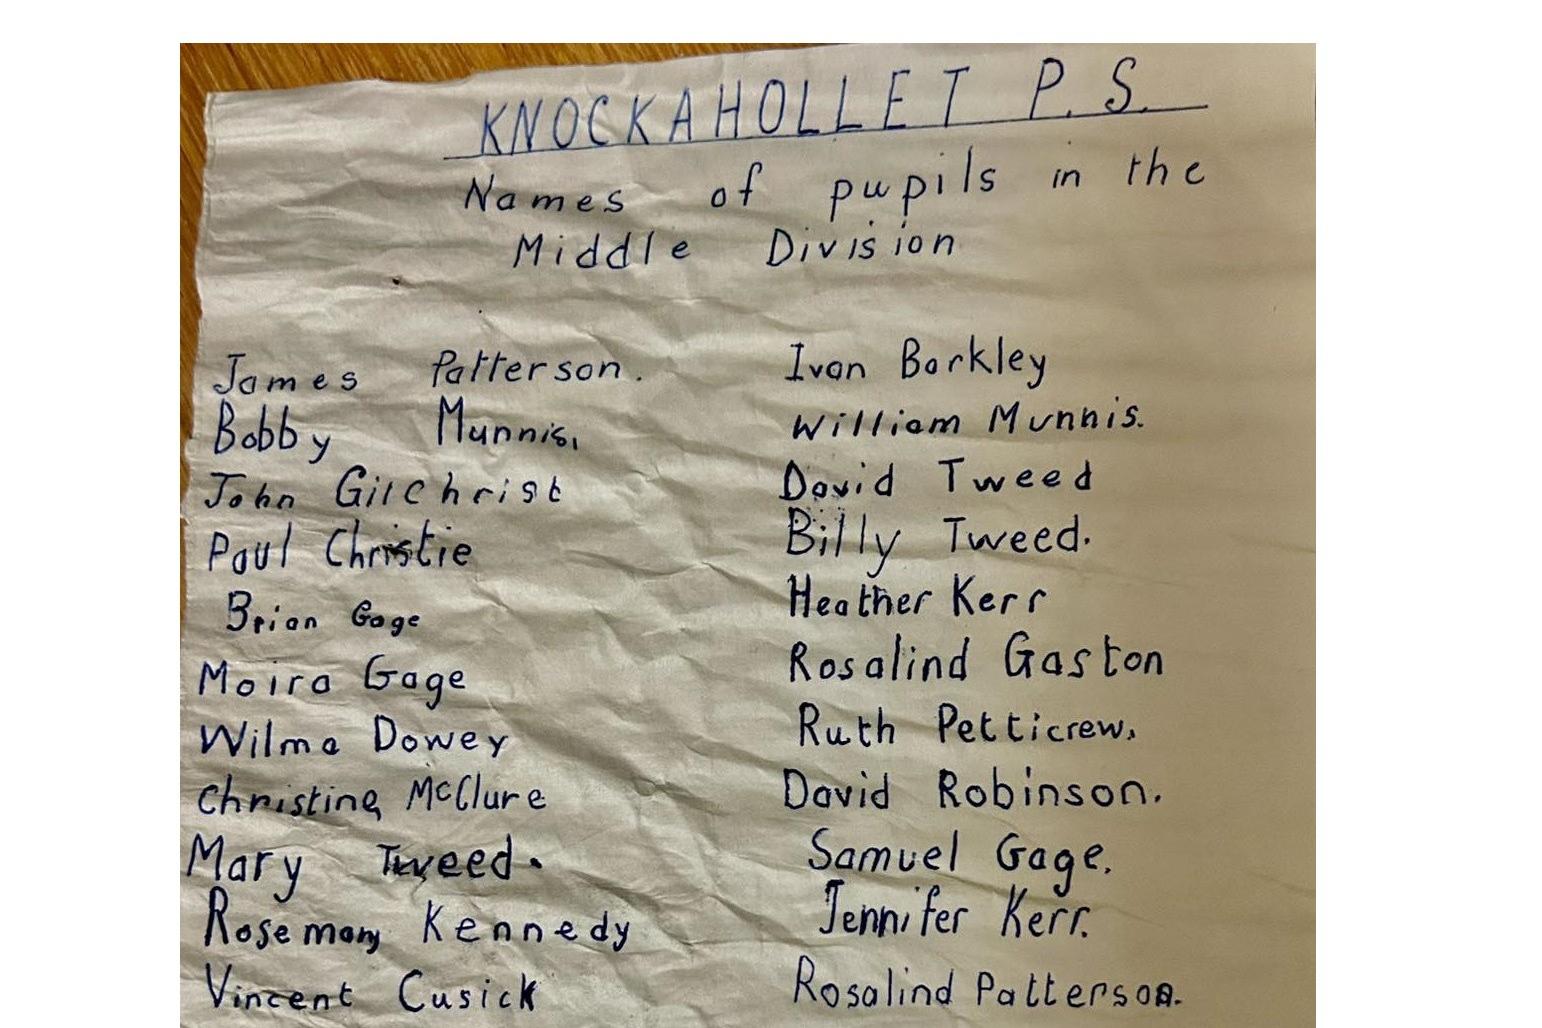 KNOCKAHOLLET P.S.
Names of pupils in the
Middle Division
James Patterson.
Bobby Munnis.
John Gilchrist
Paul Christie
Brian Gage
Moira Gage
Wilma Dowey
Christina McClure
Mary Tweed.
Rosemary Kennedy
Vincent Cusick
Ivan Barkley
William Munnis.
David Tweed
Billy Tweed.
Heather Kerr
Rosalind Gaston
Ruth Petticrew.
David Robinson.
Samuel Gage.
Jennifer Kerr.
Rosalind Patterson.